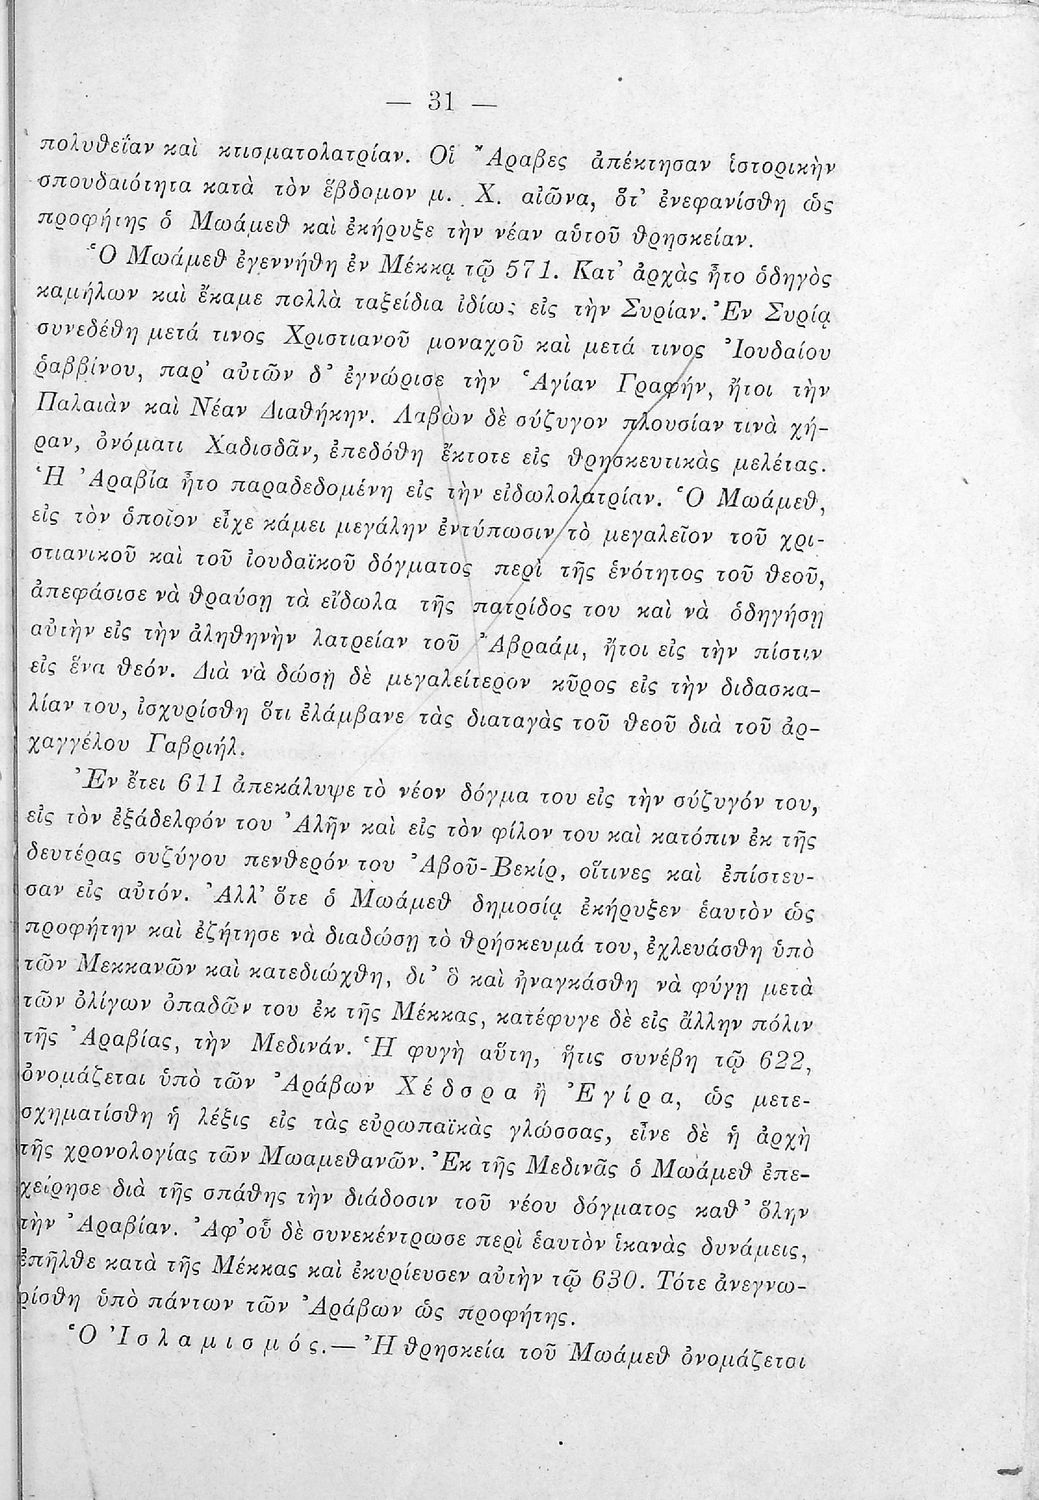 — 31 —
πολυθεΐαν καὶ κτισματολατρίαν. Οἱ Ἄραβες ἀπέκτησαν ἱστορικὴν
σπουδαιότητα κατὰ τὸν ἕβδομον μ. Χ. αἰῶνα, ὅτ’ ἐνεφανίσθη ὡς
προφήτης ὁ Μωάμεθ καὶ ἐκήρυξε τὴν νέαν αὑτοῦ θρησκείαν.
Ὁ Μωάμεθ ἐγεννήθη ἐν Μέκκᾳ τῷ 571. Κατ’ ἀρχὰς ἦτο ὁδηγὸς
καμήλων καὶ ἔκαμε πολλὰ ταξείδια ἰδίως εἰς τὴν Συρίαν. Ἐν Συρίᾳ
συνεδέθη μετά τινος Χριστιανοῦ μοναχοῦ καὶ μετά τινος Ἰουδαίου
ῥαββίνου, παρ’ αὐτῶν δ’ ἐγνώρισε τὴν Ἁγίαν Γραφήν, ἤτοι τὴν
Παλαιὰν καὶ Νέαν Διαθήκην. Λαβὼν δὲ σύζυγον πλουσίαν τινὰ χή-
ραν, ὀνόματι Χαδισδᾶν, ἐπεδόθη ἔκτοτε εἰς θρησκευτικὰς μελέτας.
Ἡ Ἀραβία ἦτο παραδεδομένη εἰς τὴν εἰδωλολατρίαν. Ὁ Μωάμεθ,
εἰς τὸν ὁποῖον εἶχε κάμει μεγάλην ἐντύπωσιν τὸ μεγαλεῖον τοῦ χρι-
στιανικοῦ καὶ τοῦ ἰουδαϊκοῦ δόγματος περὶ τῆς ἑνότητος τοῦ θεοῦ,
ἀπεφάσισε νὰ θραύσῃ τὰ εἴδωλα τῆς πατρίδος του καὶ νὰ ὁδηγήσῃ
αὐτὴν εἰς τὴν ἀληθηνὴν λατρείαν τοῦ Ἀβραάμ, ἤτοι εἰς τὴν πίστιν
εἰς ἕνα θεόν. Διὰ νὰ δώσῃ δὲ μεγαλείτερον κῦρος εἰς τὴν διδασκα-
λίαν του, ἰσχυρίσθη ὅτι ἐλάμβανε τὰς διαταγὰς τοῦ θεοῦ διὰ τοῦ ἀρ-
χαγγέλου Γαβριήλ.
Ἐν ἔτει 611 ἀπεκάλυψε τὸ νέον δόγμα του εἰς τὴν σύζυγόν του,
εἰς τὸν ἐξάδελφόν του Ἀλῆν καὶ εἰς τὸν φίλον του καὶ κατόπιν ἐκ τῆς
δευτέρας συζύγου πενθερόν του Ἀβοῦ-Βεκίρ, οἵτινες καὶ ἐπίστευ-
σαν εἰς αὐτόν. Ἀλλ’ ὅτε ὁ Μωάμεθ δημοσίᾳ ἐκήρυξεν ἑαυτὸν ὡς
προφήτην καὶ ἐζήτησε νὰ διαδώσῃ τὸ θρήσκευμά του, ἐχλευάσθη ὑπὸ
τῶν Μεκκανῶν καὶ κατεδιώχθη, δι’ ὃ καὶ ἠναγκάσθη νὰ φύγῃ μετὰ
τῶν ὀλίγων ὀπαδῶν του ἐκ τῆς Μέκκας, κατέφυγε δὲ εἰς ἄλλην πόλιν
τῆς Ἀραβίας, τὴν Μεδινάν. Ἡ φυγὴ αὕτη, ἥτις συνέβη τῷ 622,
ὀνομάζεται ὑπὸ τῶν Ἀράβων Χέδσρα ἢ Ἐγίρα, ὡς μετε-
σχηματίσθη ἡ λέξις εἰς τὰς εὐρωπαϊκὰς γλώσσας, εἶνε δὲ ἡ ἀρχὴ
τῆς χρονολογίας τῶν Μωαμεθανῶν. Ἐκ τῆς Μεδινᾶς ὁ Μωάμεθ ἐπε-
χείρησε διὰ τῆς σπάθης τὴν διάδοσιν τοῦ νέου δόγματος καθ’ ὅλην
τὴν Ἀραβίαν. Ἀφ’ οὗ δὲ συνεκέντρωσε περὶ ἑαυτὸν ἱκανὰς δυνάμεις,
ἐπῆλθε κατὰ τῆς Μέκκας καὶ ἐκυρίευσεν αὐτὴν τῷ 630. Τότε ἀνεγνω-
ρίσθη ὑπὸ πάντων τῶν Ἀράβων ὡς προφήτης.
Ὁ Ἰσλαμισμός.— Ἡ θρησκεία τοῦ Μωάμεθ ὀνομάζεται